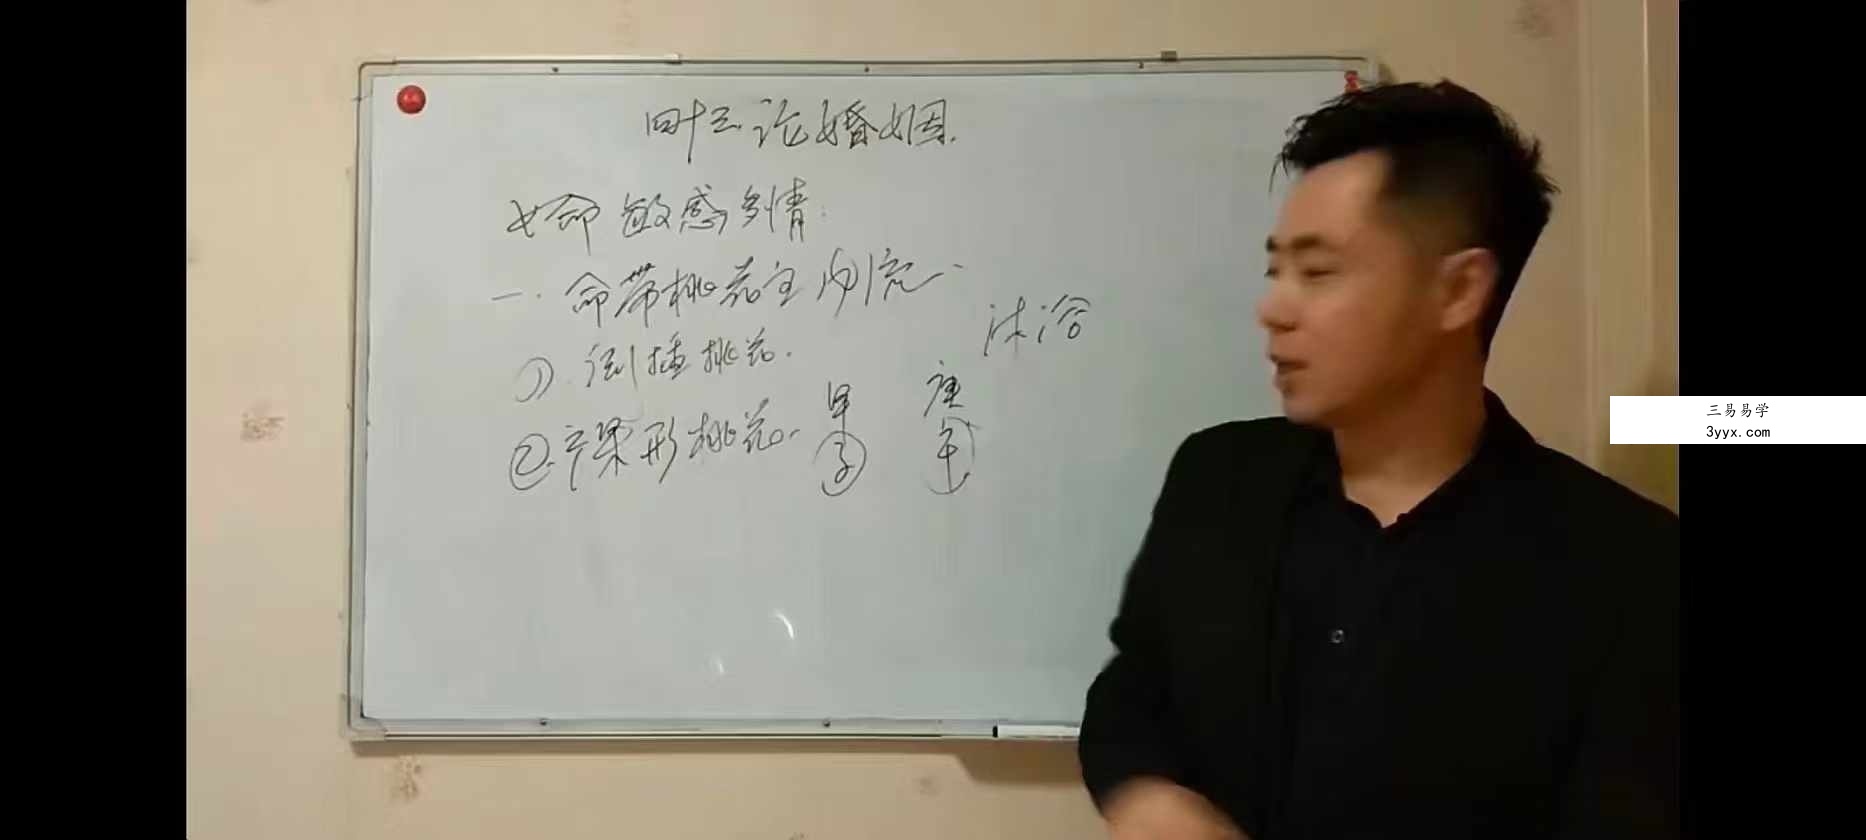 四十三.论婚姻.
女命敏感多情:
一.命带桃花主风流
沐浴
①.倒插桃花.
②.裸形桃花.
甲 庚
子 午
三易易学
3yyx.com